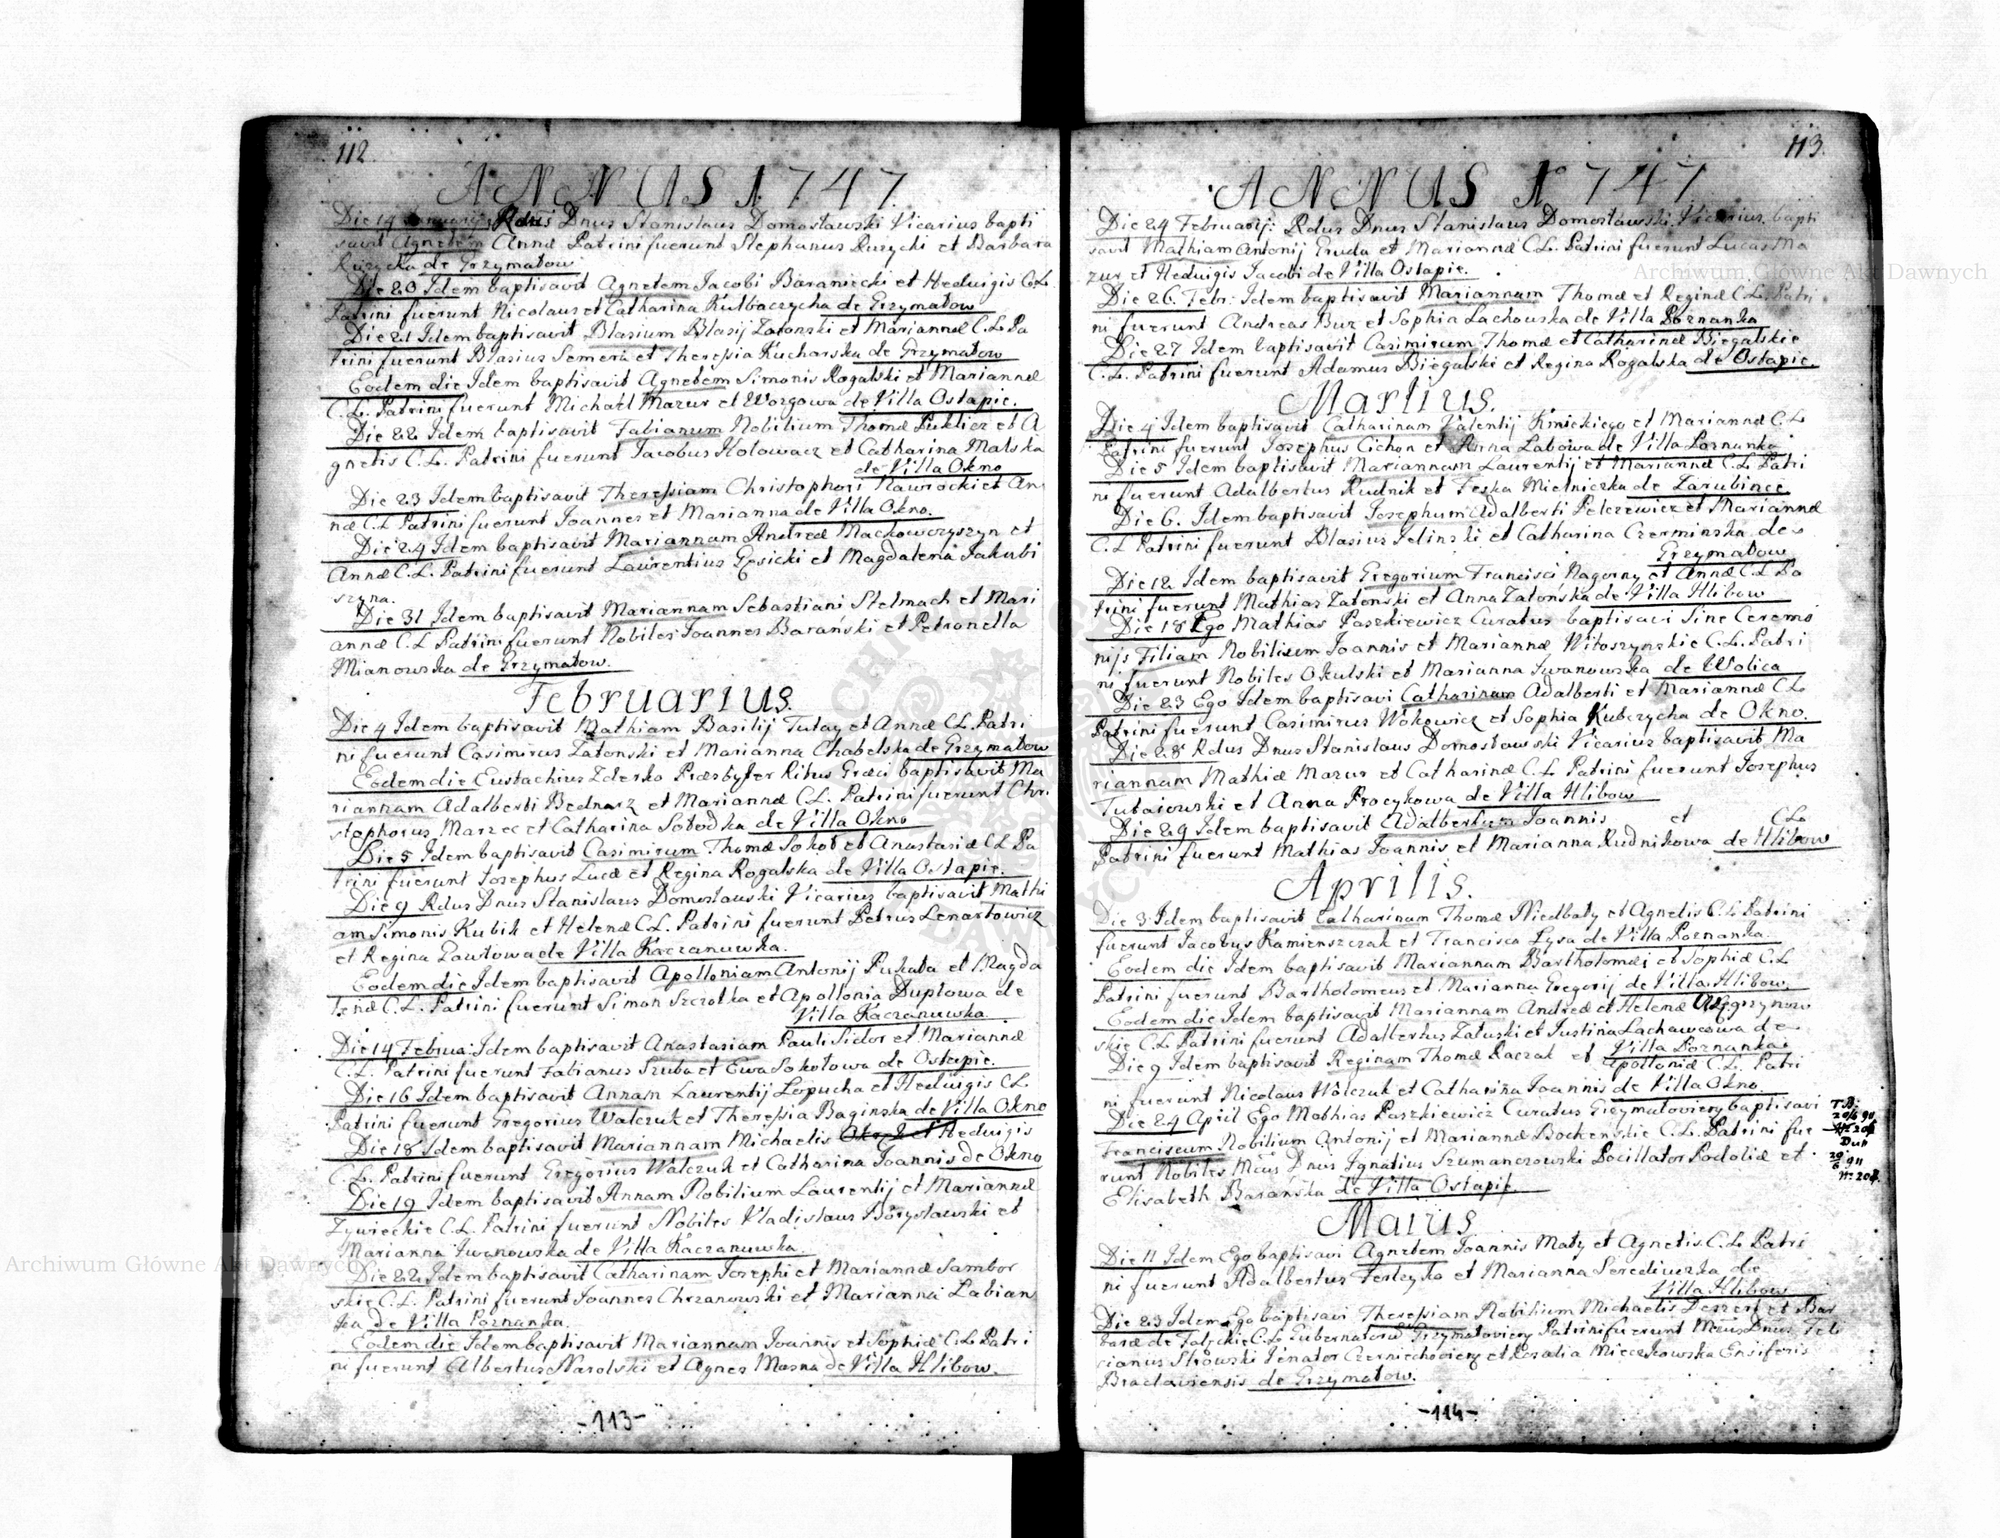 112.
ANNUS 1747.
Die 14 Januarij Rdus Dnus Stanislaus Domosławski Vicarius bapti
savit Agnetem Annæ Patrini fuerunt Stephanus Ruzycki et Barbara
Ruzycka de Grzymałow
Die 20 Idem baptisavit Agnetem Jacobi Baraniecki et Hedvigis C.L.
Patrini fuerunt Nicolaus et Catharina Kulbaczycha de Grzymałow
Die 21 Idem baptisavit Blasium Blasij Zatonski et Mariannæ C.L. Pa
trini fuerunt Blasius Semerk et Theressia Kucharska de Grzymałow
Eodem die Idem baptisavit Agnetem Simonis Rogalski et Mariannæ
C.L. Patrini fuerunt Michael Mazur et Worgowa de Villa Ostapie.
Die 22 Idem baptisavit Fabianum Nobilium Thomæ Puklicz et A
gnetis C.L. Patrini fuerunt Jacobus Holowacz et Catharina Malska
de Villa Okno
Die 23 Idem baptisavit Theressiam Christophori Nawrocki et An
næ C.L Patrini fuerunt Joannes et Marianna de Villa Okno.
Die 24 Idem baptisavit Mariannam Andreæ Mackoworyszyn et
Annæ C.L. Patrini fuerunt Laurentius Gęsicki et Magdalena Jakubi
szyna.
Die 31 Idem baptisavit Mariannam Sebastiani Stelmach et Mari
annæ C.L Patrini fuerunt Nobiles Joannes Barański et Petronella
Mianowska de Grzymałow.
Februarius.
Die 4 Idem baptisavit Mathiam Basilij Tutay et Annæ C.L. Patri
ni fuerunt Casimirus Zatonski et Marianna Chabelska de Grzymałow
Eodem die Eustachius Zdersko Præsbyter Ritus Græci baptisavit Ma
riannam Adalberti Bednarz et Mariannæ C.L. Patrini fuerunt Chri
stophorus Marzec et Catharina Sobodka de Villa Okno
Die 5 Idem baptisavit Casimirum Thomæ Sokoł et Anastasiæ C.L Pa
trini fuerunt Josephus Lucæ et Regina Rogalska de Villa Ostapie.
Die 9 Rdus Dnus Stanislaus Domosławski Vicarius baptisavit Mathi
am Simonis Kubik et Helenæ C.L. Patrini fuerunt Petrus Lenartowicz
et Regina Pawłowa de Villa Kaczanuwka.
Eodem die Idem baptisavit Apolloniam Antonij Pukała et Magda
lenæ C.L. Patrini fuerunt Simon Szczotka et Apollonia Duplowa de
Villa Kaczanuwka.
Die 14 Februa: Idem baptisavit Anastasiam Pauli Sidor et Mariannæ
C.L. Patrini fuerunt Fabianus Szuba et Ewa Sokołowa de Ostapie.
Die 16 Idem baptisavit Annam Laurentij Lopucha et Hedvigis C.L.
Patrini fuerunt Gregorius Walczuk et Theressia Baginska de Villa Okno
Die 18 Idem baptisavit Mariannam Michaelis et Hedvigis
C.L. Patrini fuerunt Gregorius Walczuk et Catharina Joannis de Okno
Die 19 Idem baptisavit Annam Nobilium Laurentij et Mariannæ
Zywieckie C.L. Patrini fuerunt Nobiles Vladislaus Borysławski et
Marianna Iwanowska de Villa Kaczanuwka.
Die 22 Idem baptisavit Catharinam Josephi et Mariannæ Sambor
skie C.L. Patrini fuerunt Joannes Chrzanowski et Marianna Labian
ka de Villa Poznanka.
Eodem die Idem baptisavit Mariannam Joannis et Sophiæ C.L. Patri
ni fuerunt Albertus Narolski et Agnes Mosna de Villa Hlibow.
-113-
113.
ANNUS 1747
Die 24 Februarij: Rdus Dnus Stanislaus Domosławski Vicarius bapti
savit Mathiam Antonij Gruda et Mariannæ C.L. Patrini fuerunt Lucas Ma
zur et Hedvigis Jacobi de Villa Ostapie.
Die 26. Febr: Idem baptisavit Mariannam Thomæ et Reginæ C.L. Patri
ni fuerunt Andreas Buz et Sophia Lachowska de Villa Poznanka
Die 27 Idem baptisavit Casimirum Thomæ et Catharinæ Biegalskie
C.L. Patrini fuerunt Adamus Biegalski et Regina Rogalska de Ostapie.
Martius.
Die 4 Idem baptisavit Catharinam Valentij Kmickiego et Mariannæ C.L
Patrini fuerunt Josephus Cichon et Anna Labowa de Villa Poznanka
Die 5 Idem baptisavit Mariannam Laurentij et Mariannæ C.L Patri
ni fuerunt Adalbertus Rudnik et Feska Mielniczka de Zarubince
Die 6. Idem baptisavit Josephum Adalberti Pelczewicz et Mariannæ
C.L Patrini fuerunt Blasius Jelinski et Catharina Czerminska de
Grzymałow
Die 12 Idem baptisavit Gregorium Francisci Nagorny et Annæ C.L Pa
trini fuerunt Mathias Zatonski et Anna Zatonska de Villa Hlibow
Die 18 Ego Mathias Paszkiewicz Curatus baptisavi Sine Ceremo
nijs Filiam Nobilium Joannis et Mariannæ Witoszynskie C.L. Patri
ni fuerunt Nobiles Okulski et Marianna Iwanowska de Wolica
Die 23 Ego Idem baptisavi Catharinam Adalberti et Mariannæ C.L
Patrini fuerunt Casimirus Wokowicz et Sophia Kubczycha de Okno.
Die 28 Rdus Dnus Stanislaus Domosławski Vicarius baptisavit Ma
riannam Mathiæ Mazur et Catharinæ C.L Patrini fuerunt Josephus
Tutaiowski et Anna Procykowa de Villa Hlibow
Die 29 Idem baptisavit Adalbertum Joannis et C.L.
Patrini fuerunt Mathias Joannis et Marianna Rudnikowa de Hlibow
Aprilis.
Die 3 Idem baptisavit Catharinam Thomæ Niedbały et Agnetis C.L Patrini
fuerunt Jacobus Kamienszczak et Francisca Lysa de Villa Poznanka.
Eodem die Idem baptisavit Mariannam Bartholomæi et Sophiæ C.L
Patrini fuerunt Bartholomeus et Marianna Gregorij de Villa Hlibow.
Eodem die Idem baptisavit Mariannam Andreæ et Helenæ
skie C.L Patrini fuerunt Adalbertus Załuski et Justina Lachawcowa de
Villa Poznanka
Die 9 Idem baptisavit Reginam Thomæ Kaczak et Apolloniæ C.L. Patri
ni fuerunt Nicolaus Wolczuk et Catharina Joannis de Villa Okno.
Die 24 April Ego Mathias Paszkiewicz Curatus Grzymałoviens baptisavi
Franciscum Nobilium Antonij et Mariannæ Bochenskie C.L. Patrini fue
runt Nobiles Meus Dnus Ignatius Szumanczowski Pocillator Podoliæ et
Elisabeth Barańska de Villa Ostapie.
T.B.
20/6 911
Nr 208
Dup
29
6 911
Nr 208
Maius
Die 11 Idem Ego baptisavi Agnetem Joannis Mały et Agnetis C.L. Patri
ni fuerunt Adalbertus Festzyka et Marianna Serediuczka de
Villa Hlibow
Die 23 Idem Ego baptisavi Theressiam Nobilium Michaelis Deszert et Bar
baræ de Falęckie C.L. Gubernatoru Grzymałoviens Patrini fuerunt Meus Dnus Feli
cianus Strowski Venator Czerniechoviens et Rosalia Mieczkowska Ensiferis
Braclawiensis de Grzymałow.
-114-
Archiwum Główne Akt Dawnych
Archiwum Główne Akt Dawnych